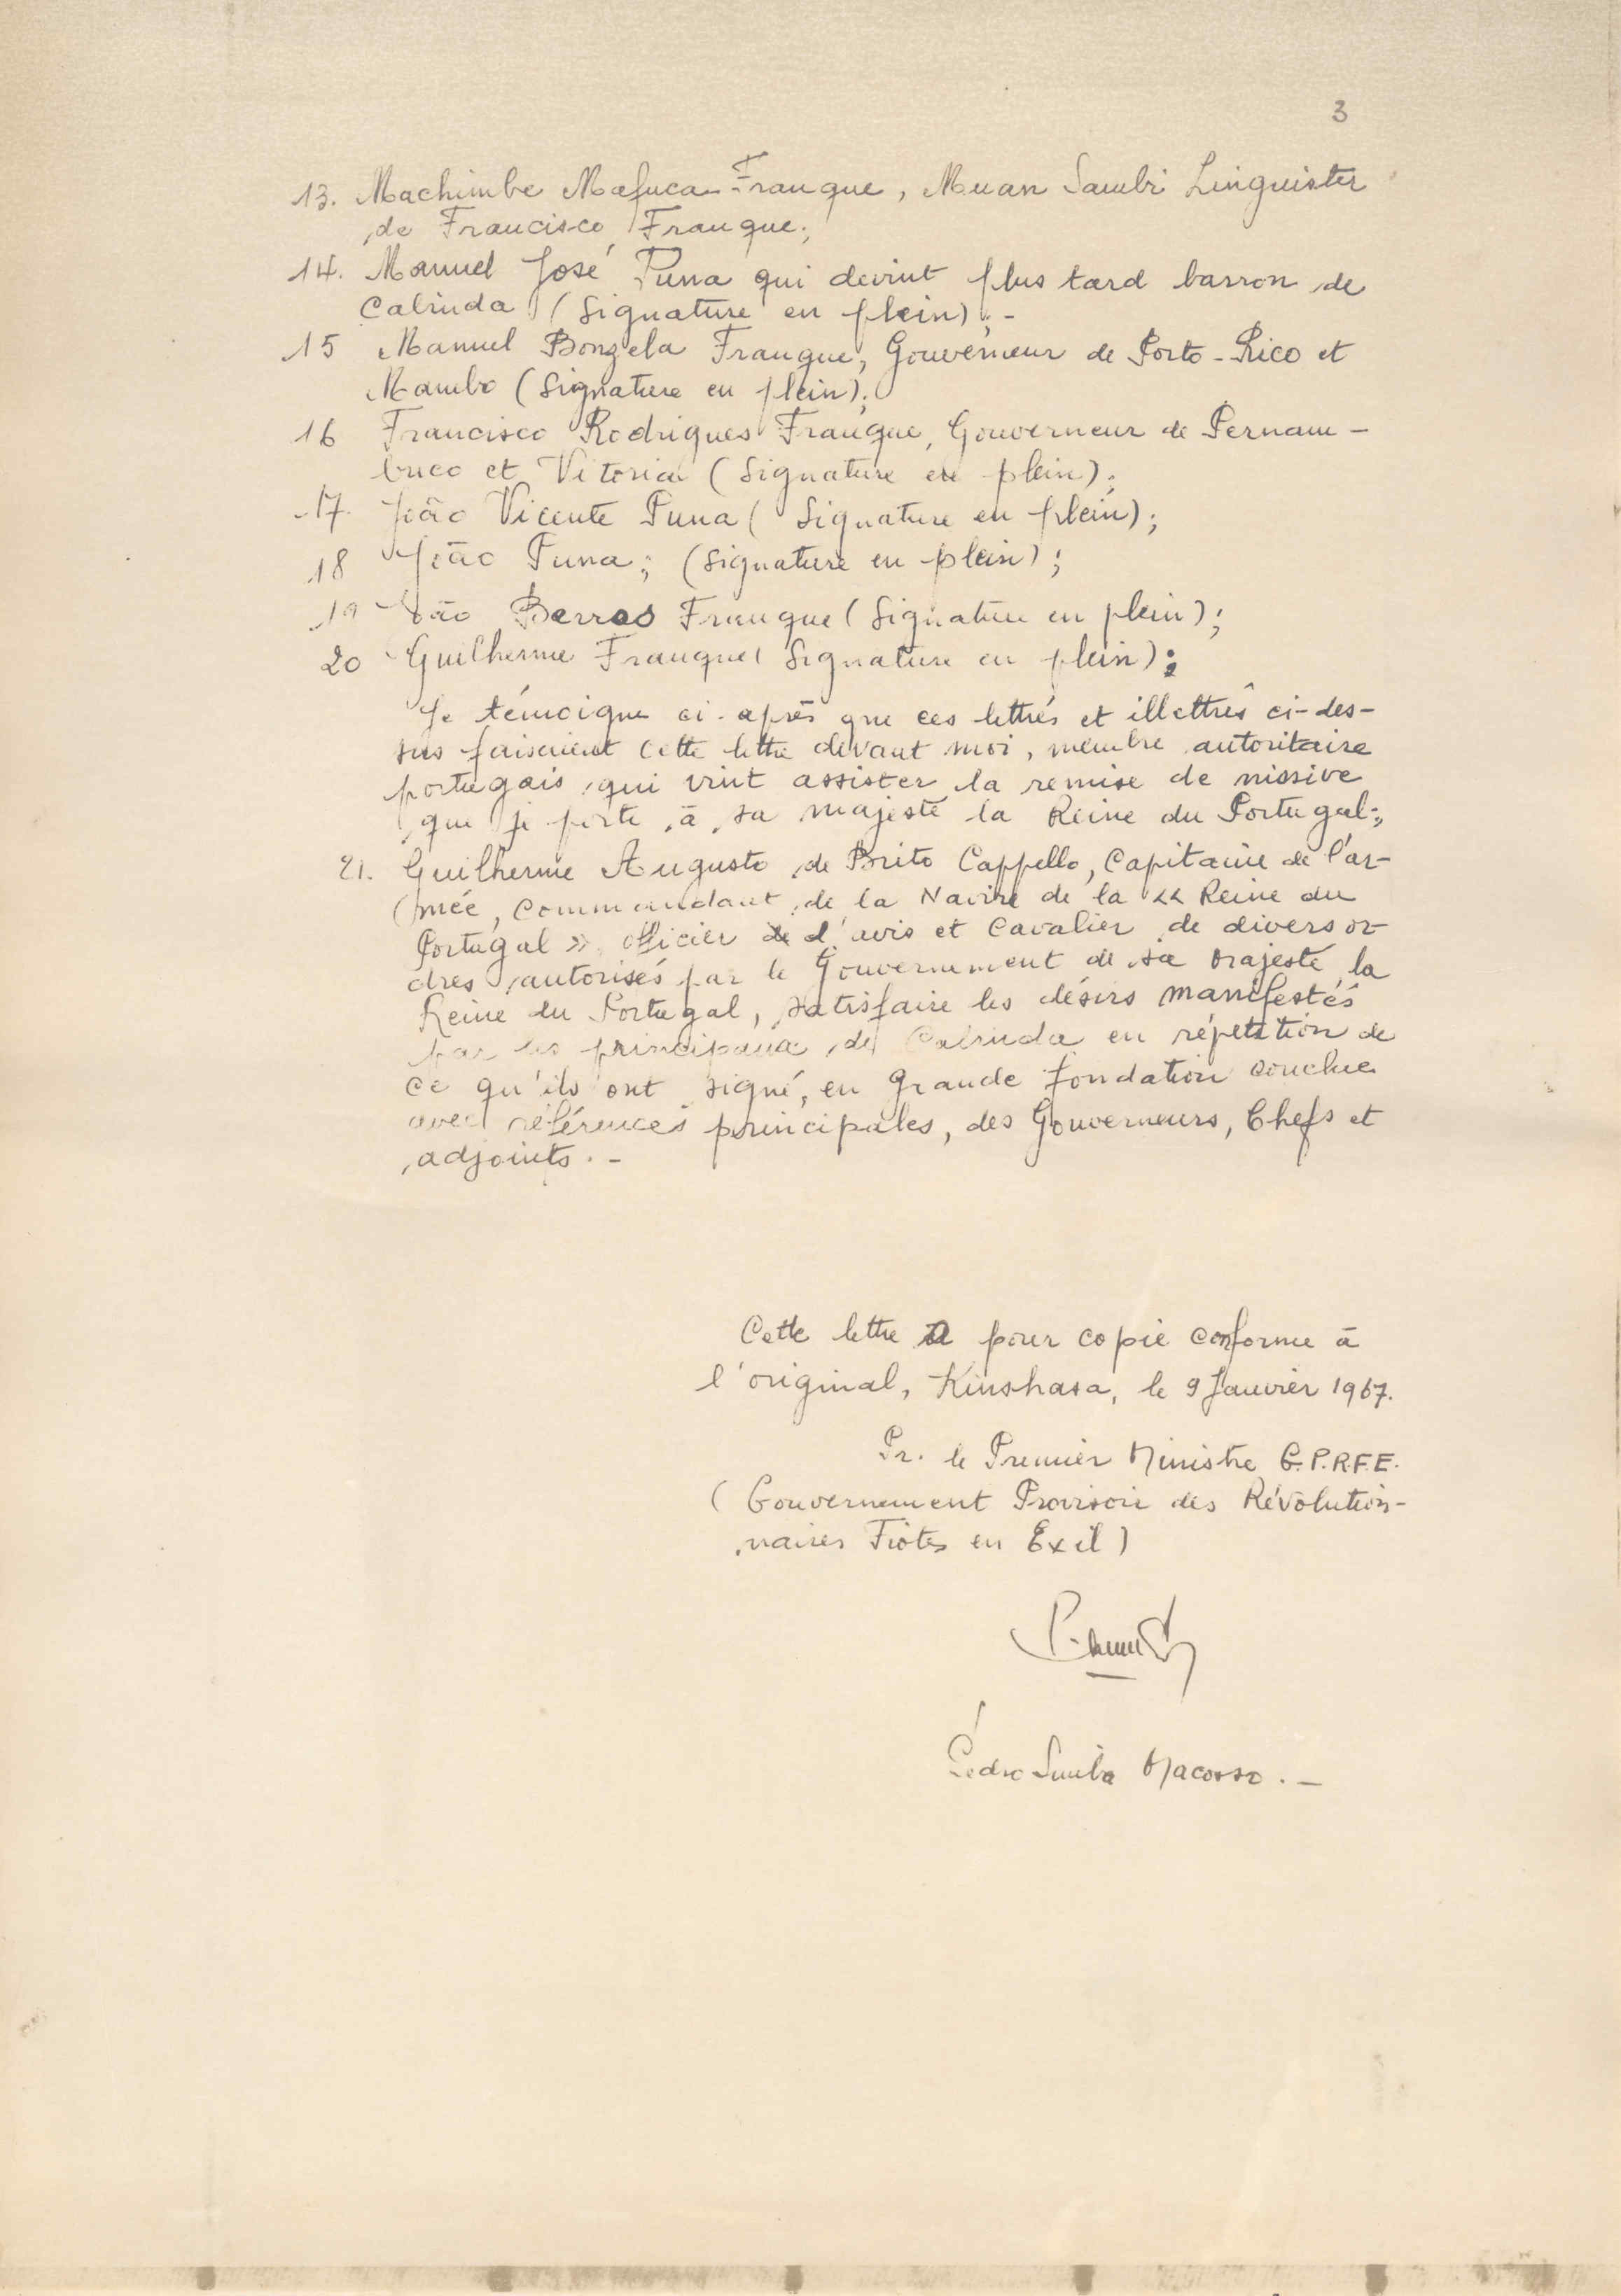 3
13. Machimbe Mafuca Franque, Muan Sambi Linguister
de Francisco Franque;
14. Manuel José Puna qui devint plus tard barron de
Cabinda (Signature en plein); -
15 Manuel Bonzela Franque, Gouverneur de Porto-Rico et
Mambo (Signature en plein);
16 Francisco Rodrigues Franque, Gouverneur de Pernam-
buco et Vitoria (Signature en plein);
17. João Vicente Puna (Signature en plein);
18 João Puna; (Signature en plein);
19 João Berros Franque (Signature en plein);
20 Guilherme Franque (Signature en plein);
Je témoigne ci-après que ces lettrés et illettrés ci-des-
sus faisaient cette lettre devant moi, membre autoritaire
portugais, qui vint assister la remise de missive
que je porte à sa majesté la Reine du Portugal;
21. Guilherme Augusto de Brito Cappello, Capitaine de l'ar-
mée, Commandant de la Navire de la « Reine du
Portugal » officier de d'avis et Cavalier de divers or-
dres autorisés par le Gouvernement de sa majesté la
Reine du Portugal, satisfaire les désirs manifestés
par les principaux de Cabinda en répétition de
ce qu'ils ont signé, en grande fondation conclue
avec références principales, des Gouverneurs, Chefs et
adjoints. -
Cette lettre a pour copie conforme à
l'original, Kinshasa, le 9 Janvier 1967.
Pr. le Premier Ministre G.P.R.F.E.
(Gouvernement Provisoire des Révolution-
naires Fiotes en Exil)
Pedro Simba Macosso. -